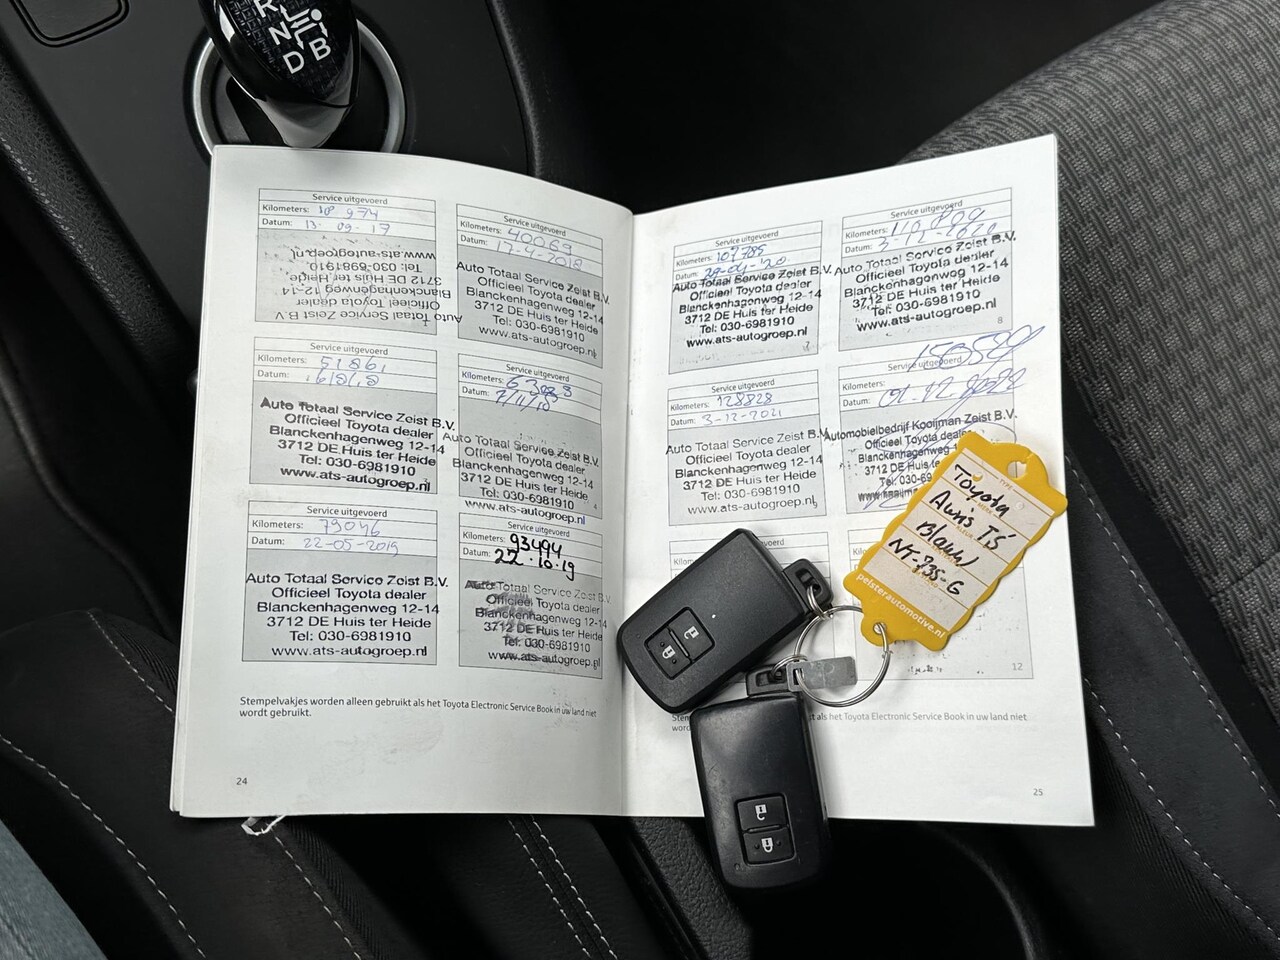 R
N
D B
Service uitgevoerd
Kilometers: 18 974
Datum: 13-09-17
Auto Totaal Service Zeist B.V.
Officieel Toyota dealer
Blanckenhagenweg 12-14
3712 DE Huis ter Heide,
Tel: 030-6981910
www.ats-autogroep.nl
Service uitgevoerd
Kilometers: 40069
Datum: 17-4-2018
Auto Totaal Service Zeist B.V.
Officieel Toyota dealer
Blanckenhagenweg 12-14
3712 DE Huis ter Heide
Tel: 030-6981910
www.ats-autogroep.nl
Service uitgevoerd
Kilometers: 51861
Datum: 6/8/18
Auto Totaal Service Zeist B.V.
Officieel Toyota dealer
Blanckenhagenweg 12-14
3712 DE Huis ter Heide
Tel: 030-6981910
www.ats-autogroep.nl
Service uitgevoerd
Kilometers:
Datum: 7/11/18
Auto Totaal Service Zeist B.V.
Officieel Toyota dealer
Blanckenhagenweg 12-14
3712 DE Huis ter Heide
Tel: 030-6981910
www.ats-autogroep.nl
4
Service uitgevoerd
Kilometers: 79046
Datum: 22-05-2019
Auto Totaal Service Zeist B.V.
Officieel Toyota dealer
Blanckenhagenweg 12-14
3712 DE Huis ter Heide
Tel: 030-6981910
www.ats-autogroep.nl
Service uitgevoerd
Kilometers: 93494
Datum: 22.10.19
Auto Totaal Service Zeist B.V.
Officieel Toyota dealer
Blanckenhagenweg 12-14
3712 DE Huis ter Heide
Tel: 030-6981910
www.ats-autogroep.nl
Stempelvakjes worden alleen gebruikt als het Toyota Electronic Service Book in uw land niet
wordt gebruikt.
24
Service uitgevoerd
Kilometers: 107785
Datum: 29-04-'20
Auto Totaal Service Zeist B.V.
Officieel Toyota dealer
Blanckenhagenweg 12-14
3712 DE Huis ter Heide
Tel: 030-6981910
www.ats-autogroep.nl
7
Service uitgevoerd
Kilometers:
Datum: 3-12-2020
Auto Totaal Service Zeist B.V.
Officieel Toyota dealer
Blanckenhagenweg 12-14
3712 DE Huis ter Heide
Tel: 030-6981910
www.ats-autogroep.nl
8
Service uitgevoerd
Kilometers: 128828
Datum: 3-12-2021
Auto Totaal Service Zeist B.V.
Officieel Toyota dealer
Blanckenhagenweg 12-14
3712 DE Huis ter Heide
Tel: 030-6981910
www.ats-autogroep.nl
Service uitgevoerd
Kilometers:
Datum: 01-12-2022
Automobielbedrijf Kooijman Zeist B.V.
Officieel Toyota dealer
Blanckenhagenweg
3712 DE Huis
Tel: 030-69
12
als het Toyota Electronic Service Book in uw land niet
25
Toyota
Auris TS
Black
NT-735-G
pelsterautomotive.nl